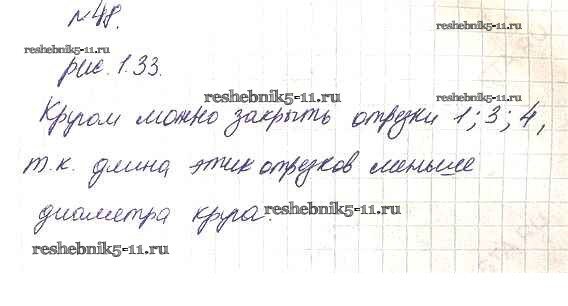 №48.
reshebnik5-11.ru reshebnik5-11.ru
рис. 1.33.
reshebnik5-11.ru reshebnik5-11.ru
Кругом можно закрыть отрезки 1; 3; 4,
т.к. длина этих отрезков меньше
диаметра круга.
reshebnik5-11.ru
reshebnik5-11.ru